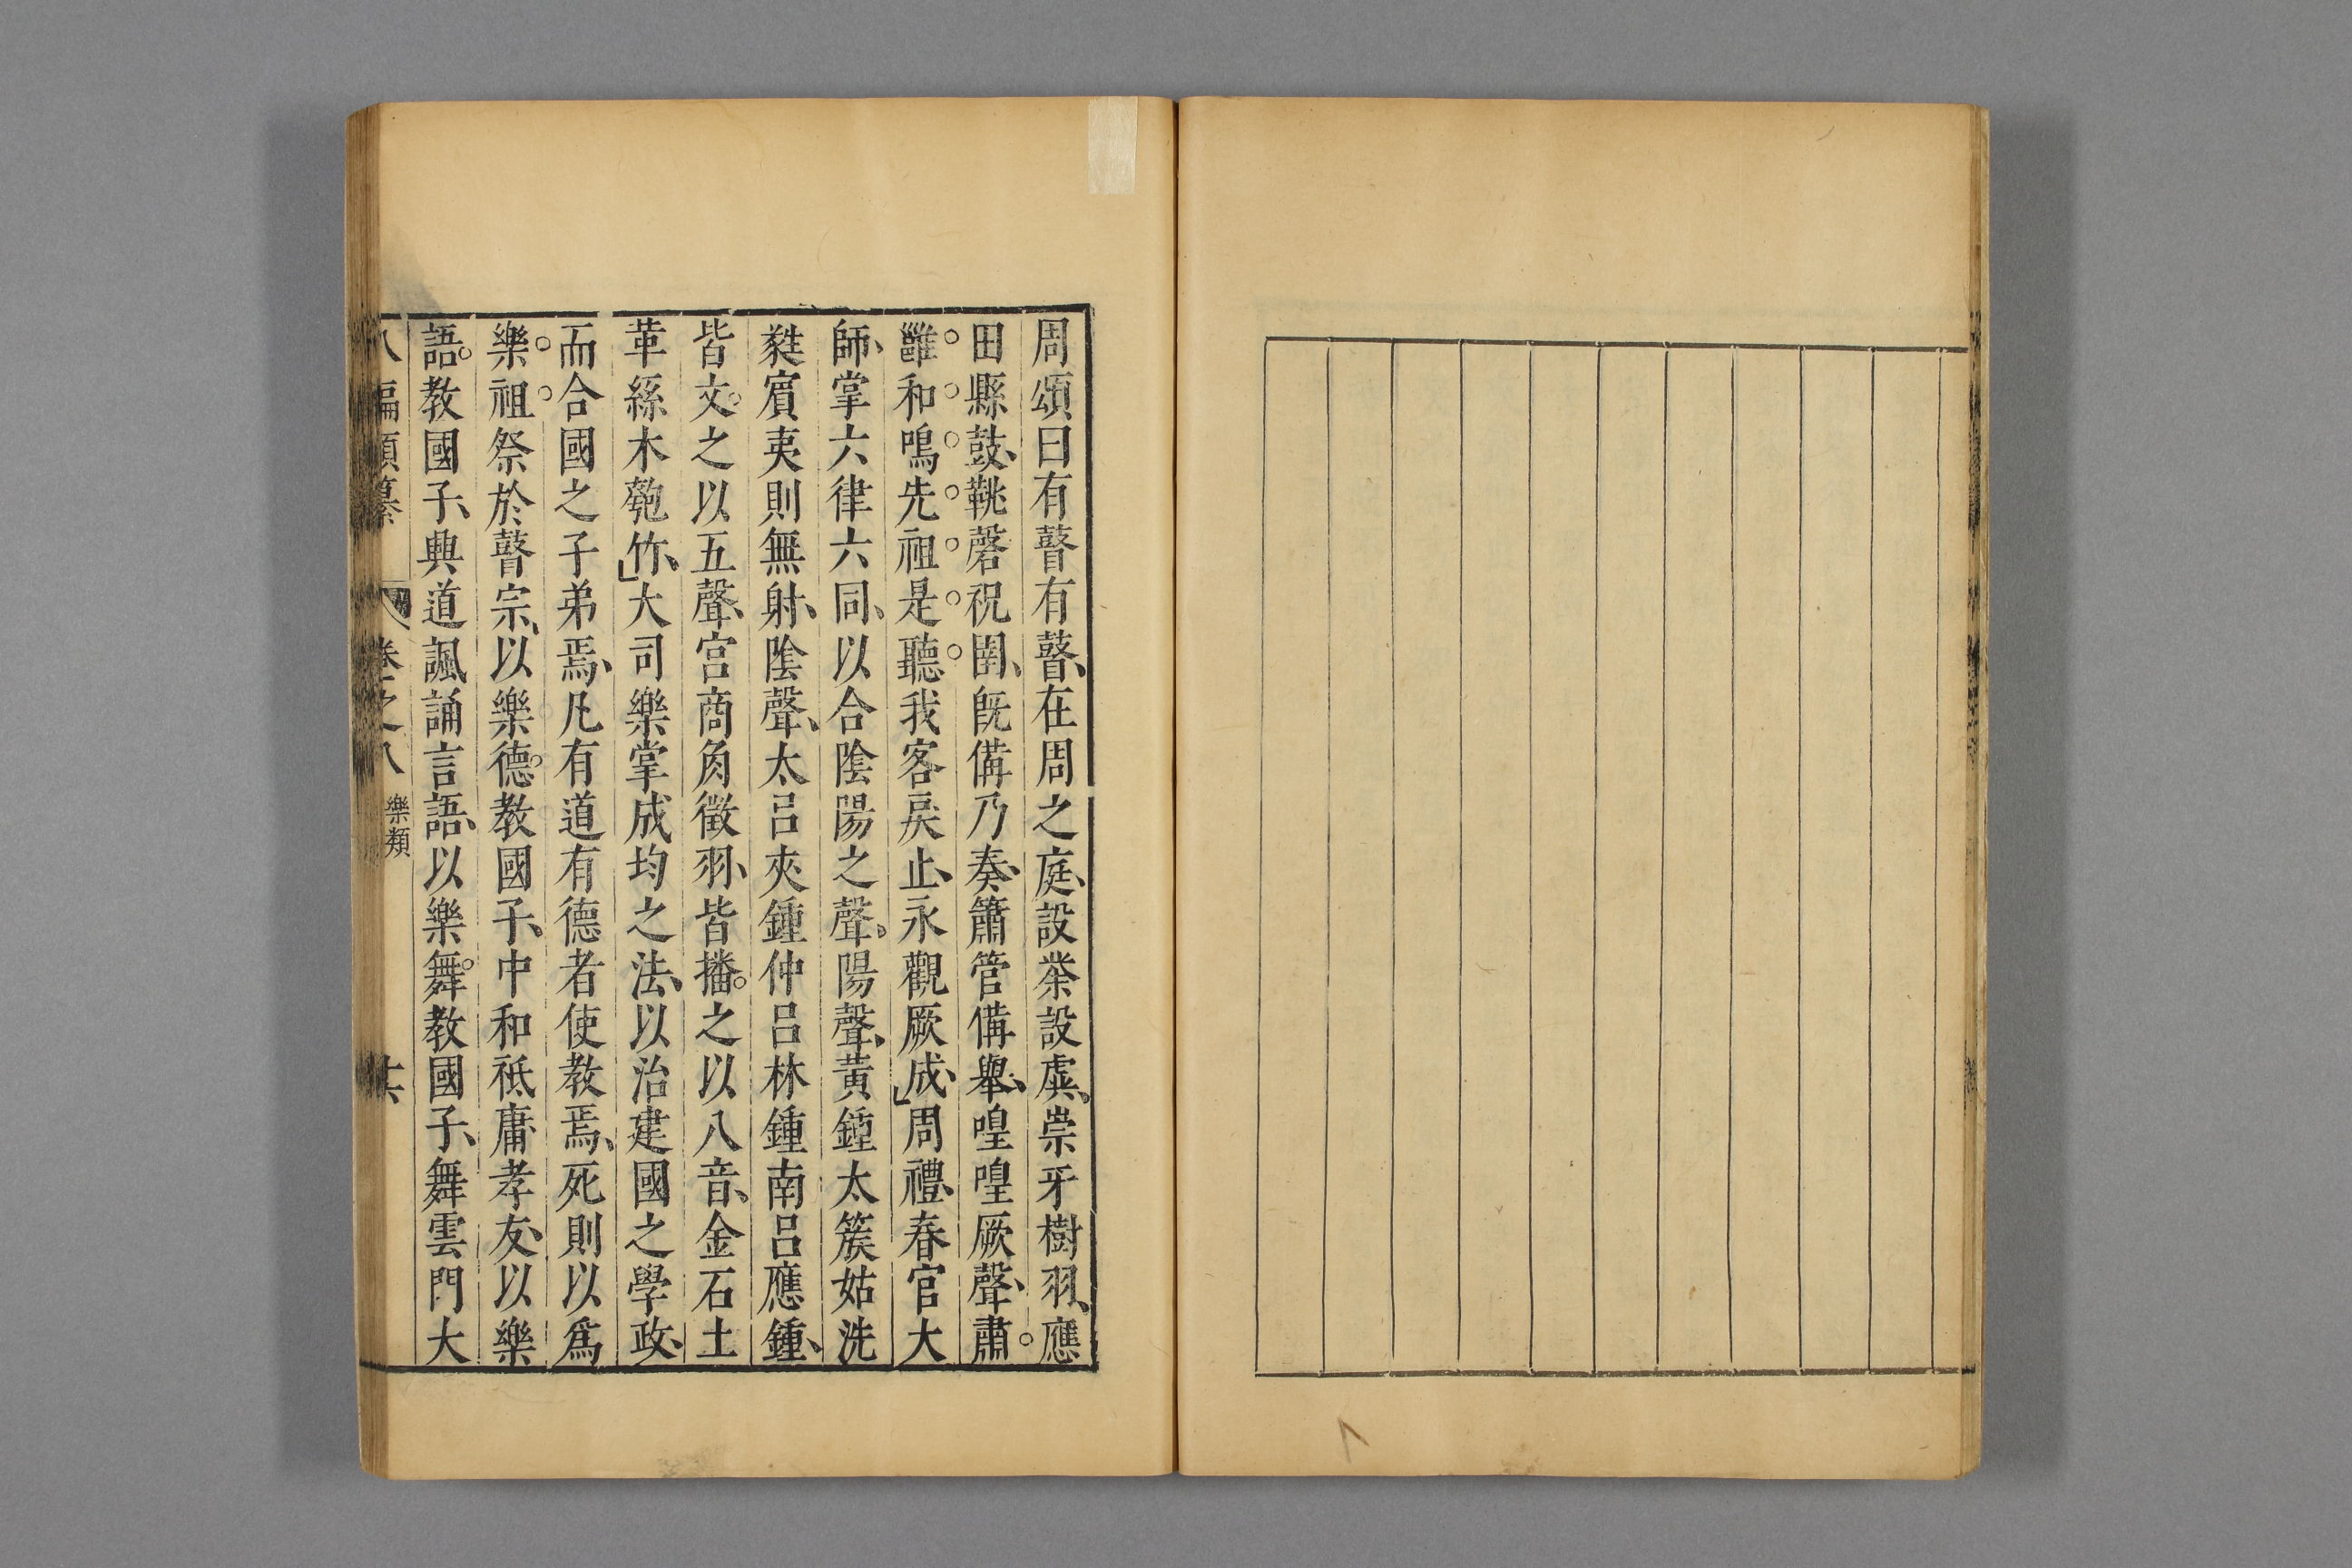 周頌曰有瞽有瞽、在周之庭、設業設虡、崇牙樹羽、應
田縣鼓、鞉磬柷圉、旣備乃奏、簫管備舉、喤喤厥聲、肅
雝和鳴先祖是聽我客戾止、永觀厥成、周禮、春官大
師、掌六律六同、以合陰陽之聲。陽聲、黃鍾太簇姑洗
蕤賓夷則無射、陰聲、太呂夾鍾仲呂林鍾南呂應鍾、
皆文。之以五聲、宮商角徵羽、皆播。之以八音、金石土
革絲木匏竹、大司樂掌成均之法、以治建國之學政、
而合國之子弟焉、凡有道有德者使教焉、死則以爲
樂。祖。祭於瞽宗、以樂德。教國子、中和祗庸孝友、以樂
語。教國子、興道諷誦言語、以樂舞。教國子、舞雲門大
八編類纂 卷之八 樂類 共